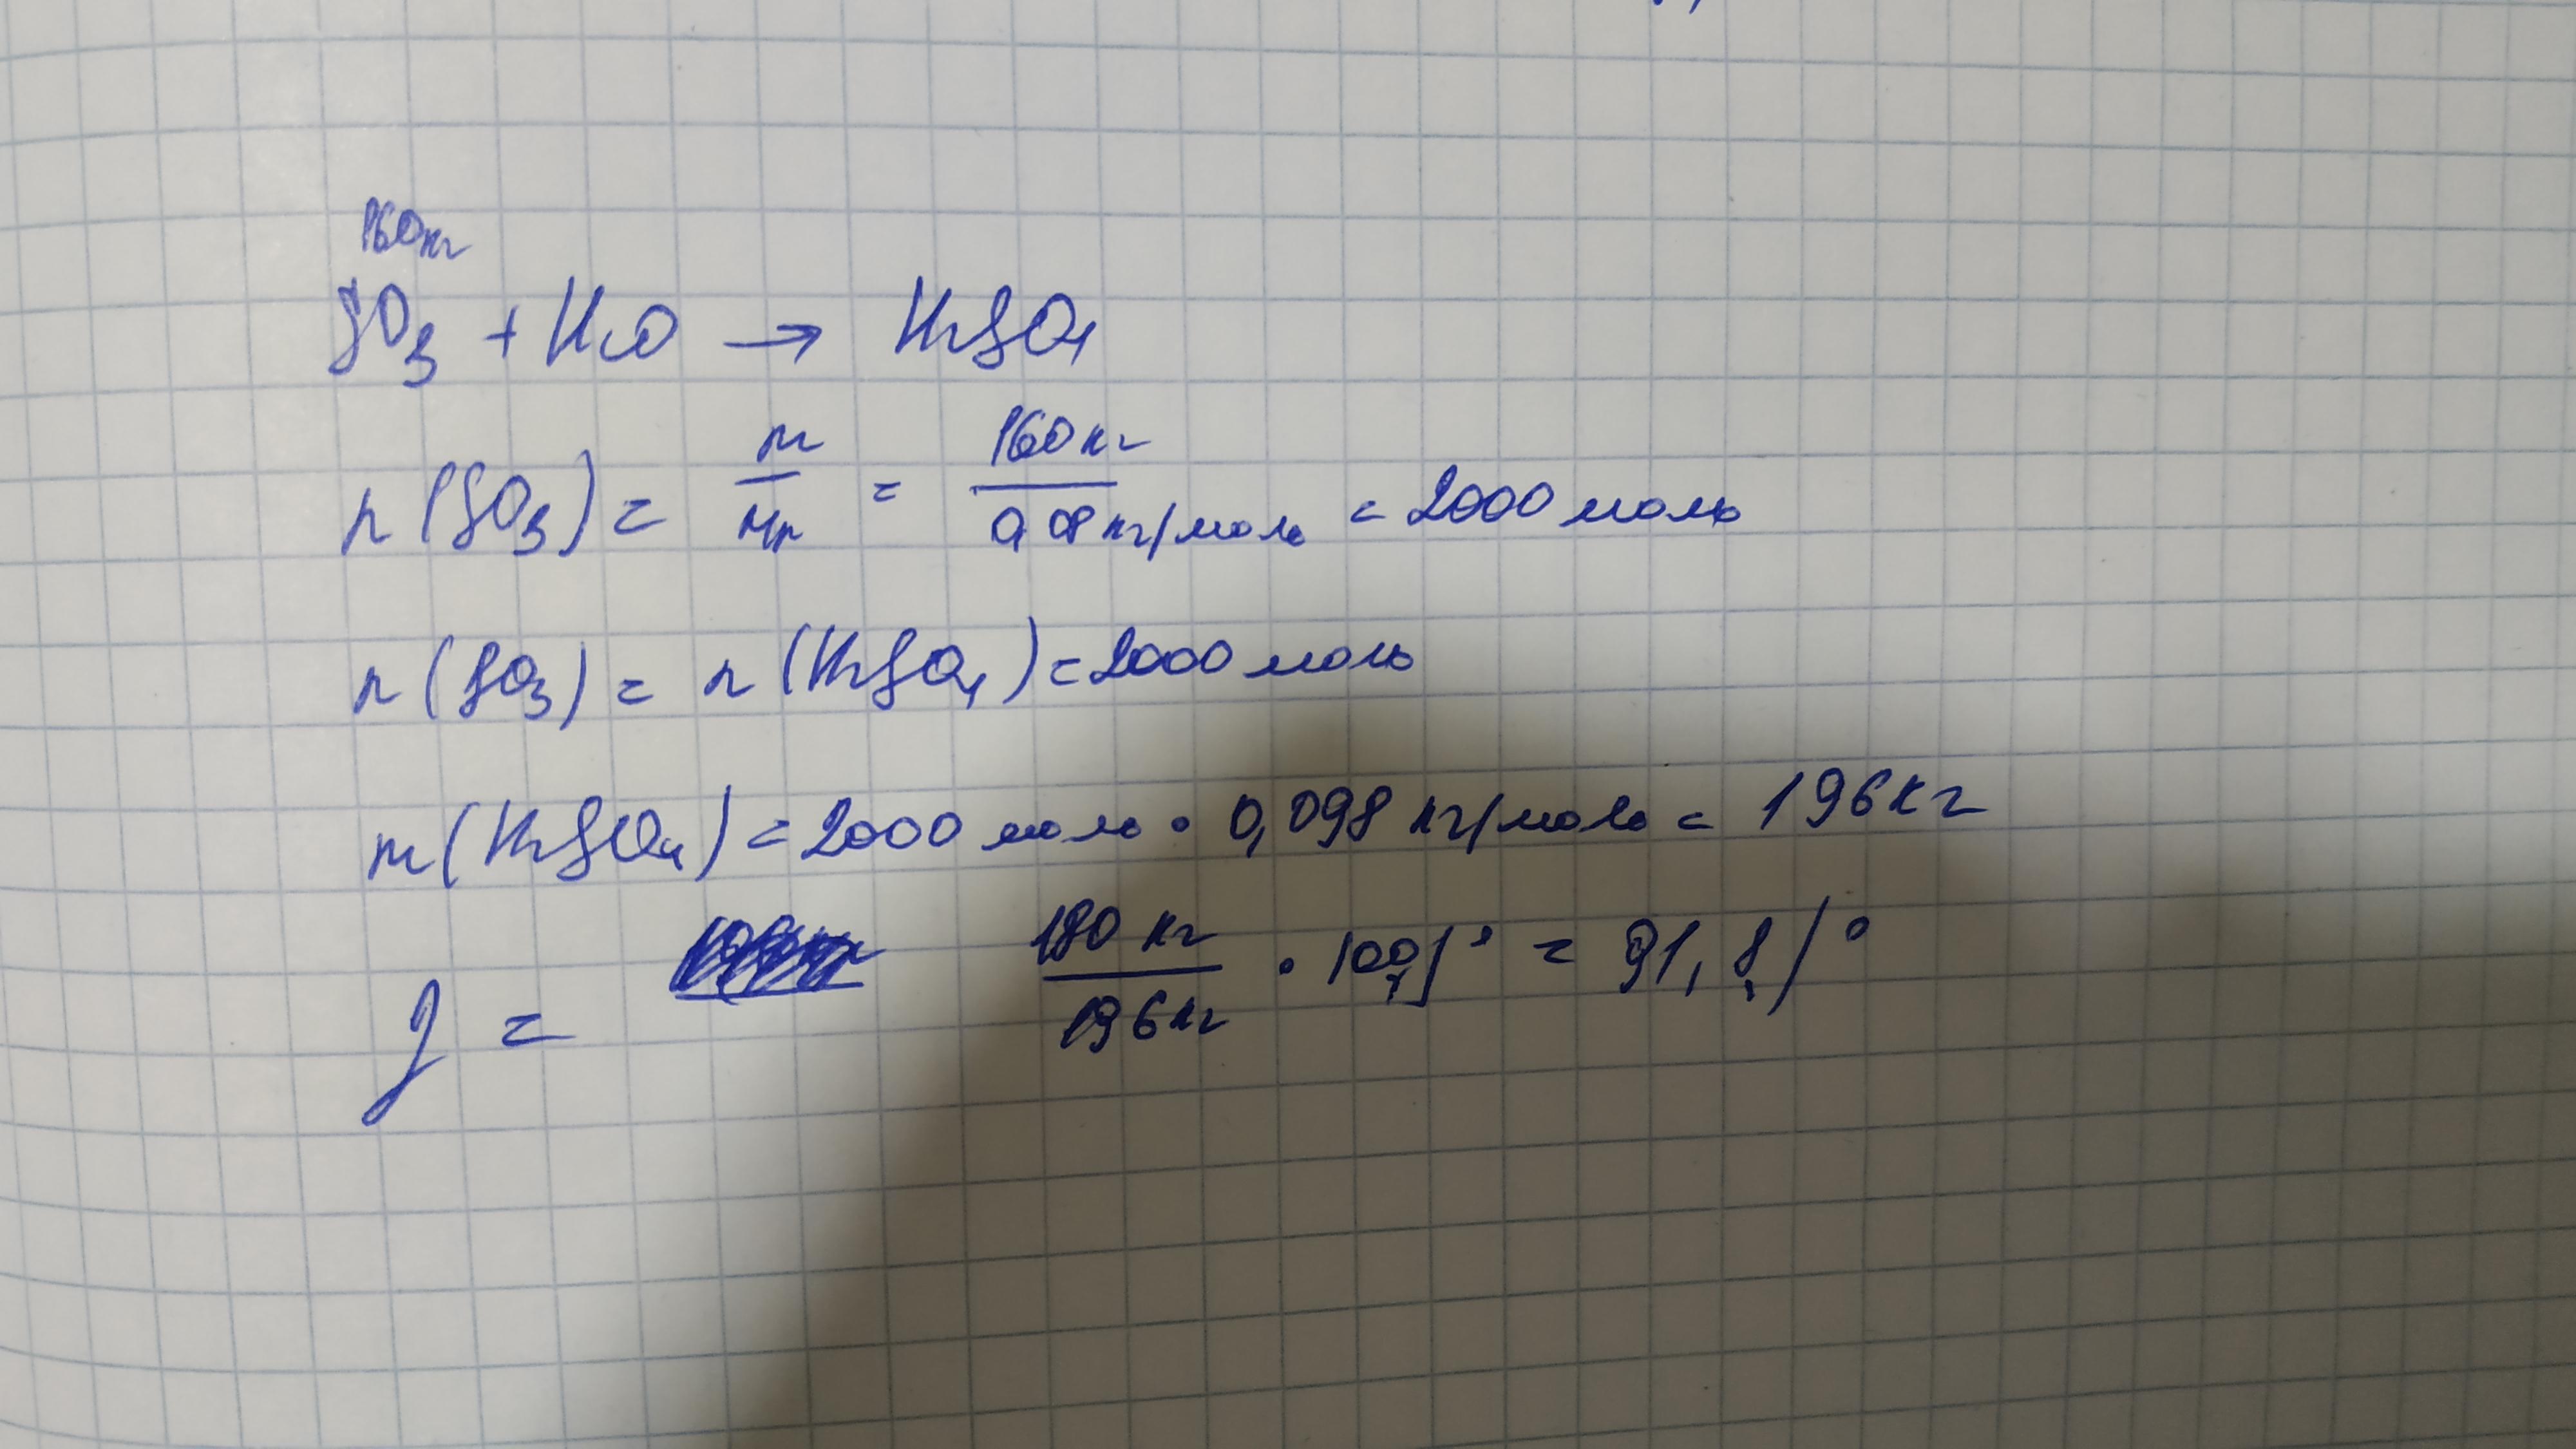 160кг
SO3 + H2O → H2SO4
n(SO3) = m/Mr = 160кг/0,08кг/моль = 2000 моль
n(SO3) = n(H2SO4) = 2000 моль
m(H2SO4) = 2000 моль · 0,098 кг/моль = 196кг
η = 180 кг/196кг · 100% = 91,8%